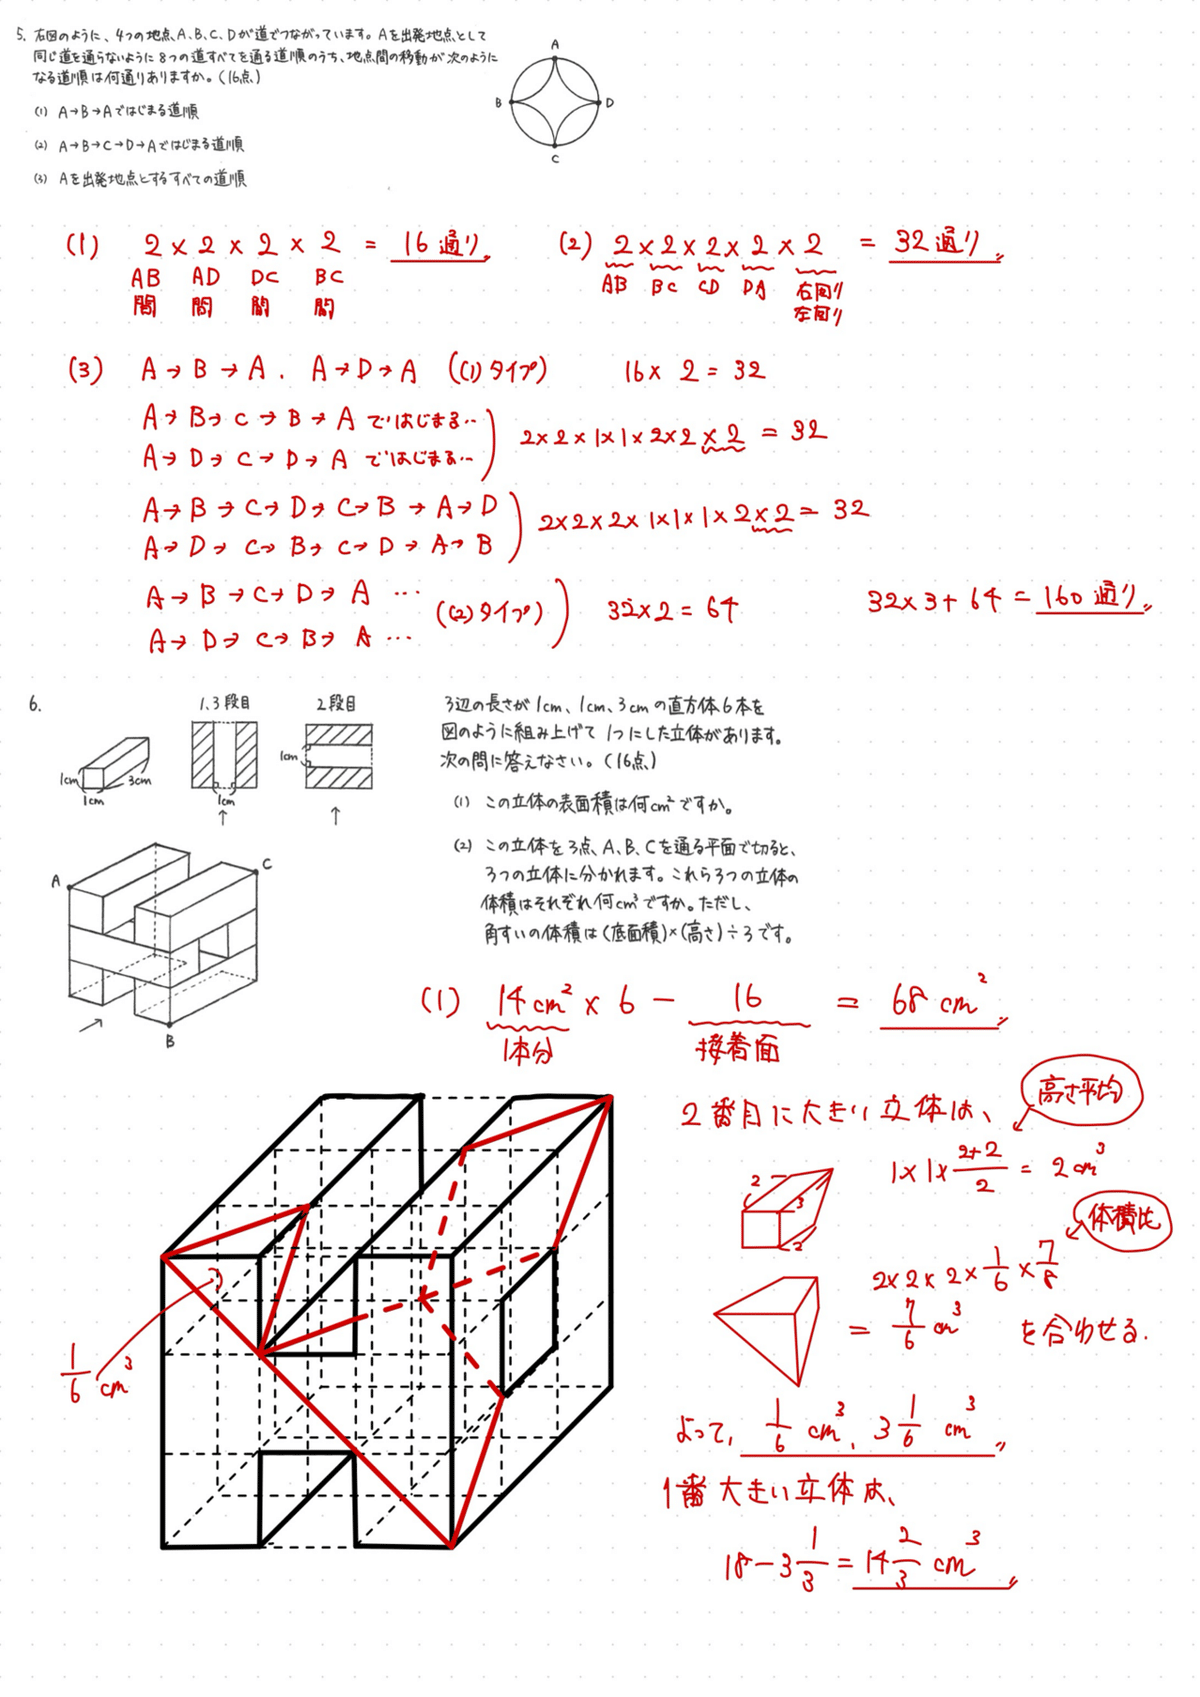 5. 右図のように、4つの地点A、B、C、Dが道でつながっています。Aを出発地点として
同じ道を通らないように8つの道すべてを通る道順のうち、地点間の移動が次のように
なる道順は何通りありますか。(16点)
(1) A→B→Aではじまる道順
(2) A→B→C→D→Aではじまる道順
(3) Aを出発地点とするすべての道順
A
B
D
C
(1) 2×2×2×2 = 16通り
AB AD DC BC
間 間 間 間
(2) 2×2×2×2×2 = 32通り
AB BC CD DA 右回り
左回り
(3) A→B→A、A→D→A ((1)タイプ) 16×2=32
A→B→C→B→A ではじまる…
A→D→C→D→A ではじまる…
2×2×1×1×2×2×2 = 32
A→B→C→D→C→B→A→D
A→D→C→B→C→D→A→B
2×2×2×1×1×1×2×2 = 32
A→B→C→D→A …
A→D→C→B→A …
((2)タイプ) 32×2=64
32×3+64 = 160通り
6.
1cm 1cm 3cm
1、3段目
1cm
↑
2段目
1cm
↑
A
C
B
3辺の長さが1cm、1cm、3cmの直方体6本を
図のように組み上げて1つにした立体があります。
次の問に答えなさい。(16点)
(1) この立体の表面積は何cm²ですか。
(2) この立体を3点、A、B、Cを通る平面で切ると、
3つの立体に分かれます。これら3つの立体の
体積はそれぞれ何cm³ですか。ただし、
角すいの体積は(底面積)×(高さ)÷3です。
(1) 14cm² × 6 - 16 = 68cm²
1本分 接着面
2番目に大きい立体は、
高さ平均
1×1×(2+2)/2 = 2cm³
2 3 2
体積比
2×2×2×1/6×7/8
= 7/6 cm³ を合わせる.
1/6 cm³
よって、1/6 cm³、3 1/6 cm³
1番大きい立体は、
18-3 1/3 = 14 2/3 cm³